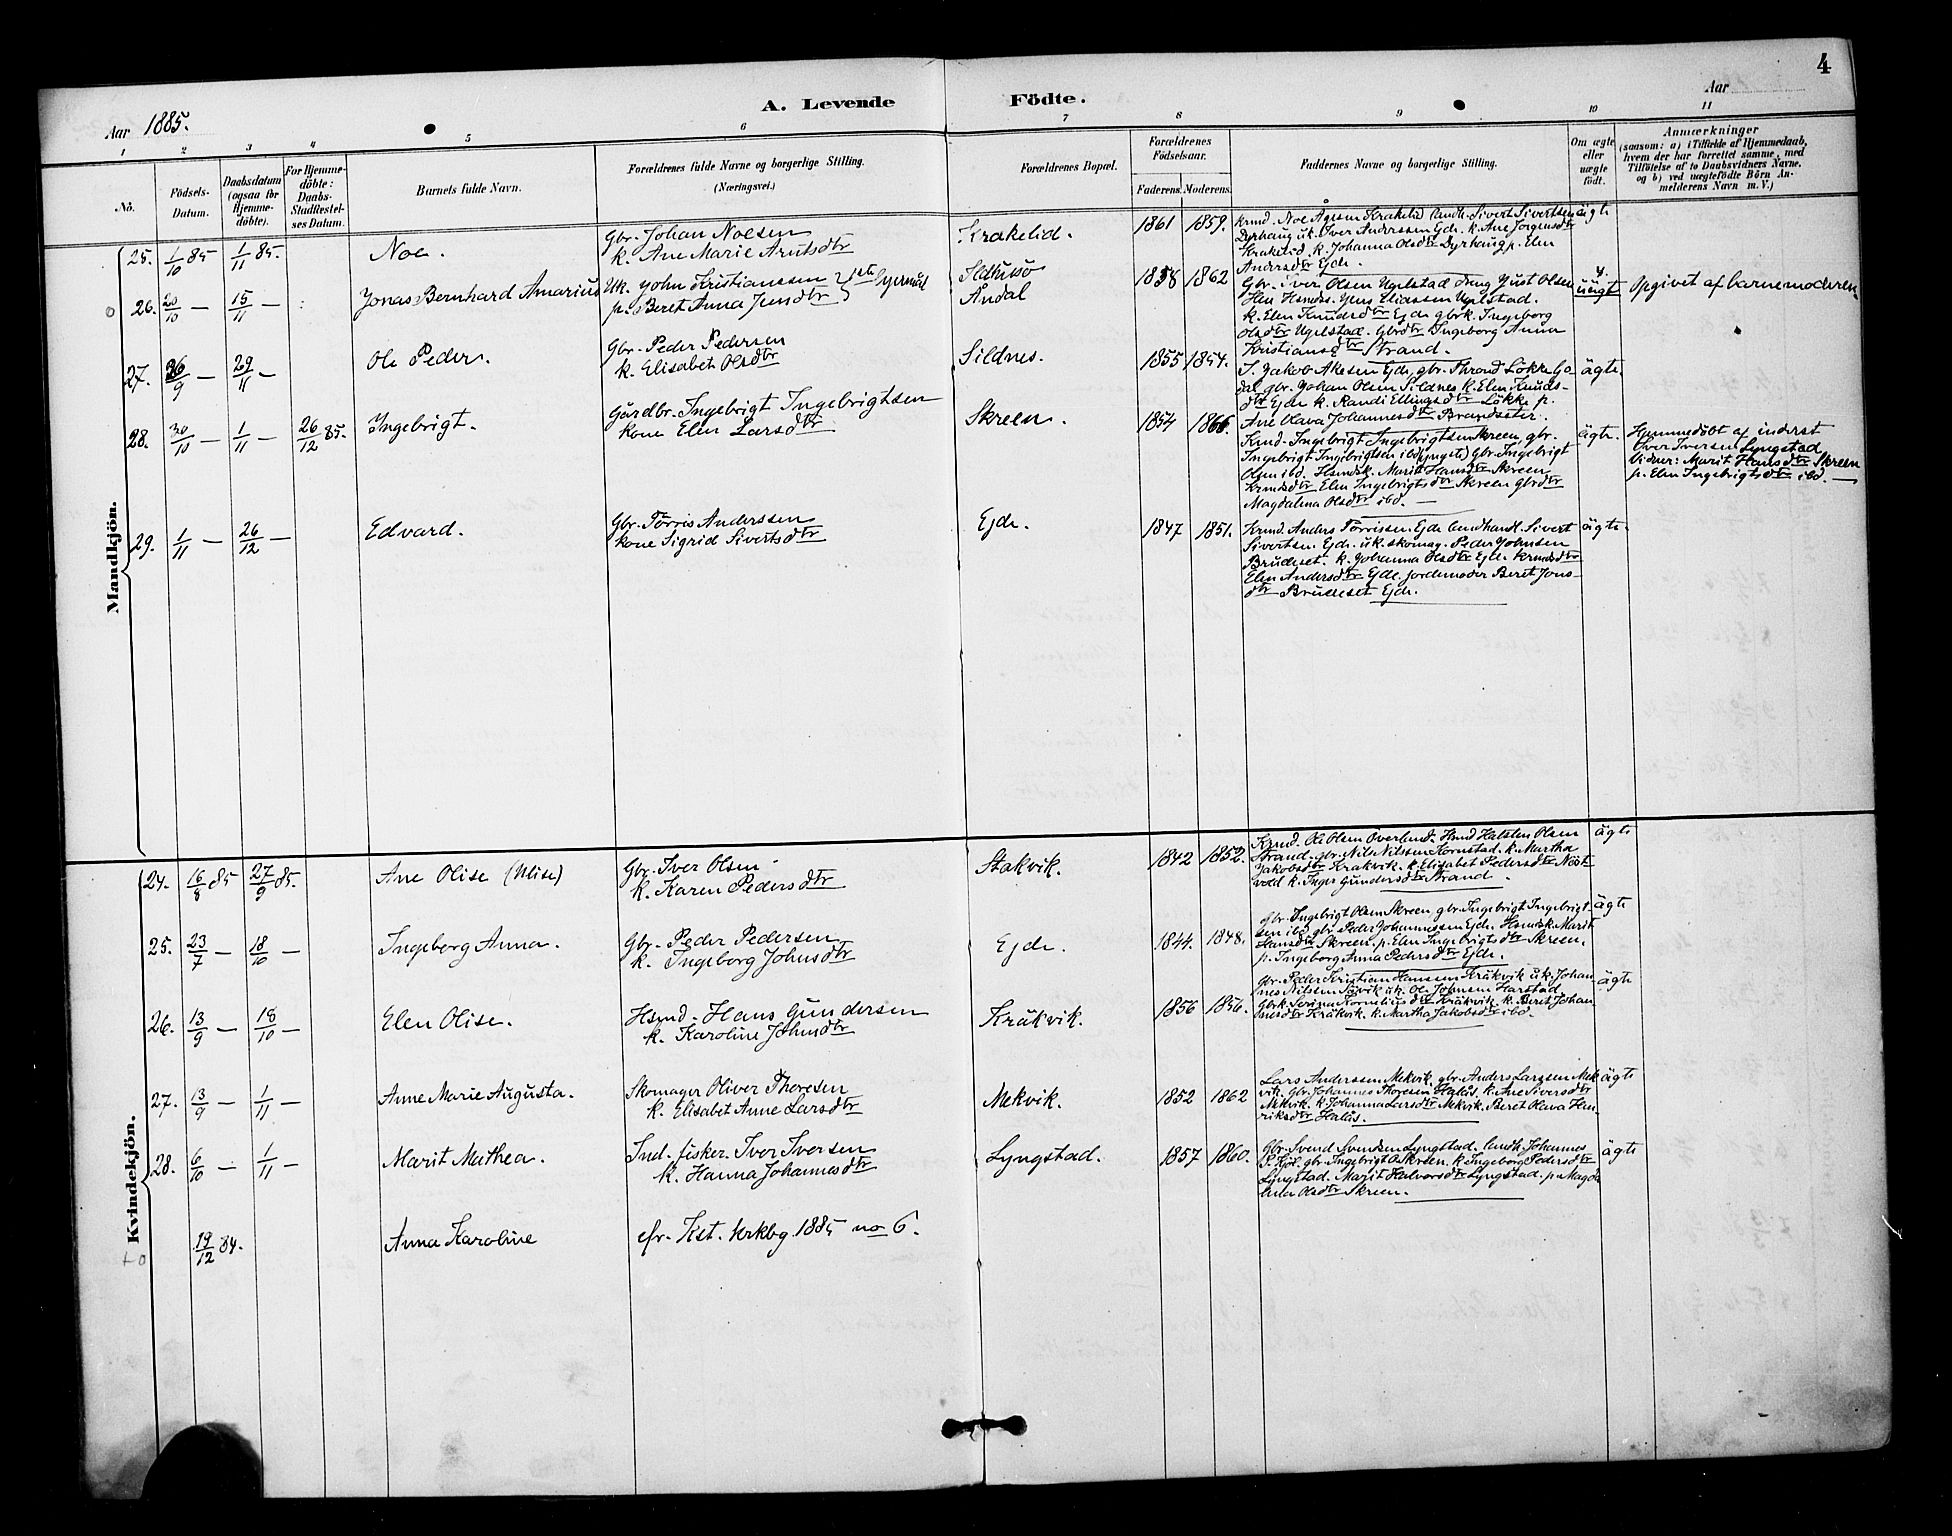 4
Aar 1885.
A. Levende Födte.
Aar
1 2 3 4 5 6 7 8 9 10 11
No.
Födsels-
Datum.
Daabsdatum
(ogsaa for
Hjemme-
döbte).
For Hjemme-
döbte:
Daabs-
Stadfæstel-
ses Datum.
Barnets fulde Navn.
Forældrenes fulde Navne og borgerlige Stilling.
(Næringsvei.)
Forældrenes Bopæl.
Forældrenes
Födselsaar.
Faderens. Moderens.
Faddernes Navne og borgerlige Stilling.
Om ægte
eller
uægte
født.
Anmærkninger
(saasom: a) i Tilfælde af Hjemmedaab,
hvem der har forrettet samme, med
Tilföielse af to Daabsvidners Navne,
og b) ved uægtefödte Börn An-
melderens Navn m. V.)
Mandkjön.
25. 1/10 85 1/11 85. Noe.
Gbr. Johan Noesen
k. Ane Marie Arntsdtr
Krakelid. 1861 1859.
Krmd. Noe Agesen Krakelid landh. Sivert Sivertsen
Dyrhaug uk. Iver Anderssen Ejde. k. Ane Jörgensdtr
Krakelid k. Johanna Olsdtr Dyrhaug p. Elen
Andersdtr Ejde.
ägte
26. 20/10 — 15/11 — Jonas Bernhard Amarius
Uk. John Kristianssen
p. Beret Anna Jensdtr
Åndal 1858 1862
Gbr. Iver Olsen Ugelstad dreng Just Olsen
Hen Hsmds. Jens Eliassen Ugelstad.
k. Elen Knudsdtr Ejde gbrk. Ingeborg
Olsdtr Ugelstad. Gbrdtr Ingeborg Anna
Kristiansdtr Strand.
uägt
Opgivet af barnemoderen.
27. 26/9 — 29/11 — Ole Peder.
Gbr. Peder Pedersen
k. Elisabet Olsdtr
Sildnes. 1855 1854.
S. Jakob Aksen Ejde, gbr. Thrond Løkke Go
dal gbr. Johan Olsen Sildnes k. Elen Knuds-
dtr Ejde k. Randi Ellingsdtr Løkke p.
Ane Olava Johannesdtr Brandsæter.
ägte.
28. 30/10 — 1/11 — 26/12 85. Ingebrigt.
Gårdbr. Ingebrigt Ingebrigtsen
kone Elen Larsdtr
Skreen. 1854 1866.
Krmd. Ingebrigt Ingebrigtsen Skreen, gbr.
Ingebrigt Ingebrigtsen ibd (yngste) Gbr. Ingebrigt
Olsen ibd. Hsmdsk. Marit Hansdtr Skreen
Krmdsdtr Elen Ingebrigtsdtr Skreen Gbrdtr
Magdalena Olsdtr ibd. —
ägte.
Hjemmedöbt af inderst
Iver Iversen Lyngstad
Vidner: Marit Hansdtr Skreen
p. Elen Ingebrigtsdtr ibd. —
29. 1/11 — 26/12 — Edvard.
Gbr. Törris Anderssen
kone Sigrid Sivertsdtr
Ejde. 1847 1851.
Krmd. Anders Törrissen Ejde landhandl. Sivert
Sivertsen. Ejde. uk. skomag. Peder Johnsen
Brudeset. k. Johanna Olsdtr Ejde. krmdsdtr
Elen Andersdtr Ejde jordemoder Beret Jons-
dtr Brudeset Ejde.
ägte.
Kvindekjön.
24. 16/8 85 27/9 85. Ane Olise (Ulise)
Gbr. Iver Olsen
k. Karen Pedersdtr
Stokvik. 1842 1852.
Krmd. Ole Olsen Overlund. Hsmd Halsten Olsen
Strand. gbr. Nils Nilssen Hornstad. k. Martha
Jakobsdtr Krakvik. k. Elisabet Pedersdtr Nöst-
vold k. Inger Gundersdtr Strand.
ägte
25. 23/7 — 18/10 — Ingeborg Anna.
Gbr. Peder Pedersen
k. Ingeborg Johnsdtr
Ejde. 1844. 1848.
Gbr. Ingebrigt Olsen Skreen, gbr. Ingebrigt Ingebrigt-
sen ibd gbr. Peder Johannessen Ejde. Hsmdsk. Marit
Hansdtr Skreen. p. Elen Ingebrigtsdtr Skreen.
p. Ingeborg Anna Pedersdtr Ejde.
ägte
26. 13/9 — 18/10 — Elen Olise.
Hsmd. Hans Gundersen
k. Karoline Johnsdtr
Kråkvik. 1856 1856.
Gbr. Peder Kristian Hanssen Kråkvik uk. Johan-
nes Nilssen uk. Ole Johnsen Harstad
Gbrk. Serina Korneliusdtr Kråkvik k. Beret Johan-
nesdtr Kråkvik. k. Martha Jakobsdtr ibd.
ägte
27. 13/9 — 1/11 — Anne Marie Augusta.
Skomager Oliver Thoresen
k. Elisabet Anne Larsdtr
Mekvik. 1852 1862
Lars Anderssen Mekvik, gbr. Anders Larssen Mek
vik. Gbr. Johannes Thoresen Halås. k. Ane Siversdtr
Mekvik. k. Johanna Larsdtr Mekvik. Beret Olava Hen-
riksdtr Halås.
ägte
28. 6/10 — 1/11 — Marit Mathea.
Ind. fisker. Iver Iversen
k. Hanna Johannesdtr
Lyngstad. 1857 1860.
Gbr. Svend Svendsen Lyngstad. landh. Johannes
S. Kjöl. gbr. Ingebrigt O. Skreen. k. Ingeborg Pedersdtr
Lyngstad. Marit Halvorsdtr Lyngstad. p. Magda
lena Olsdtr Skreen.
ägte
19/12 84. Anna Karoline
cfr. Kst. kirkbg. 1885 no 6.